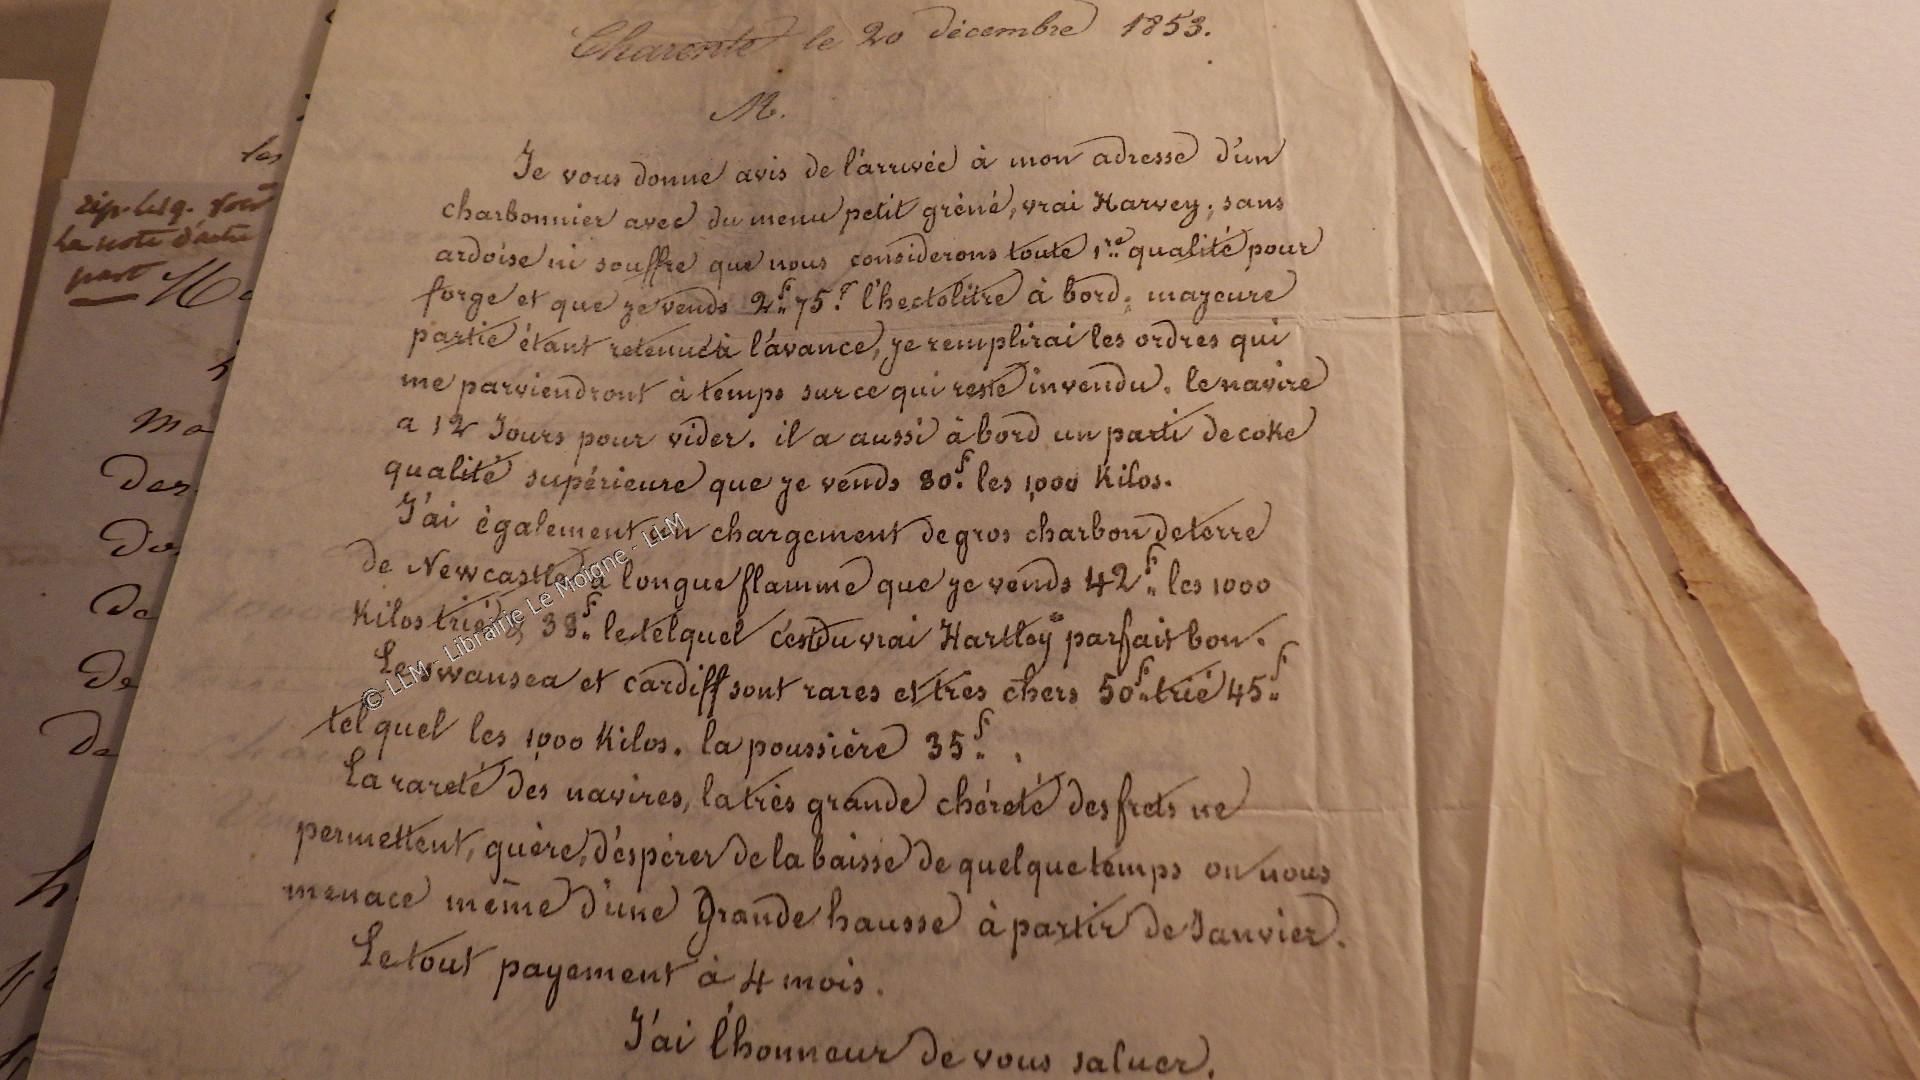 Charente le 20 décembre 1853.
M.
Je vous donne avis de l'arrivée à mon adresse d'un
charbonnier avec du menu petit gréné, vrai Harvey, sans
ardoise ni souffre que nous considerons toute 1re qualité pour
forge et que je vends 2f 75c l'hectolitre à bord; majeure
partie étant retenue à l'avance, je remplirai les ordres qui
me parviendront à temps sur ce qui reste invendu. le navire
a 12 Jours pour vider. il a aussi à bord un parti de coke
qualité supérieure que je vends 80f les 1,000 Kilos.
J'ai également un chargement de gros charbon de terre
de Newcastle à longue flamme que je vends 42f les 1000
Kilos trié & 38f le tel quel c'est du vrai Hartley parfait bon.
Le swansea et cardiff sont rares et très chers 50f trié 45f
tel quel les 1,000 Kilos. la poussière 35f.
La rareté des navires, la très grande chéreté des frets ne
permettent, guère, d'éspérer de la baisse de quelque temps on nous
menace même d'une Grande hausse à partir de Janvier.
Le tout payement à 4 mois.
J'ai l'honneur de vous saluer.
les
la note d'autre
part
Ma
Des
Do
De
De
De
© LLM - Librairie Le Moigne - LLM